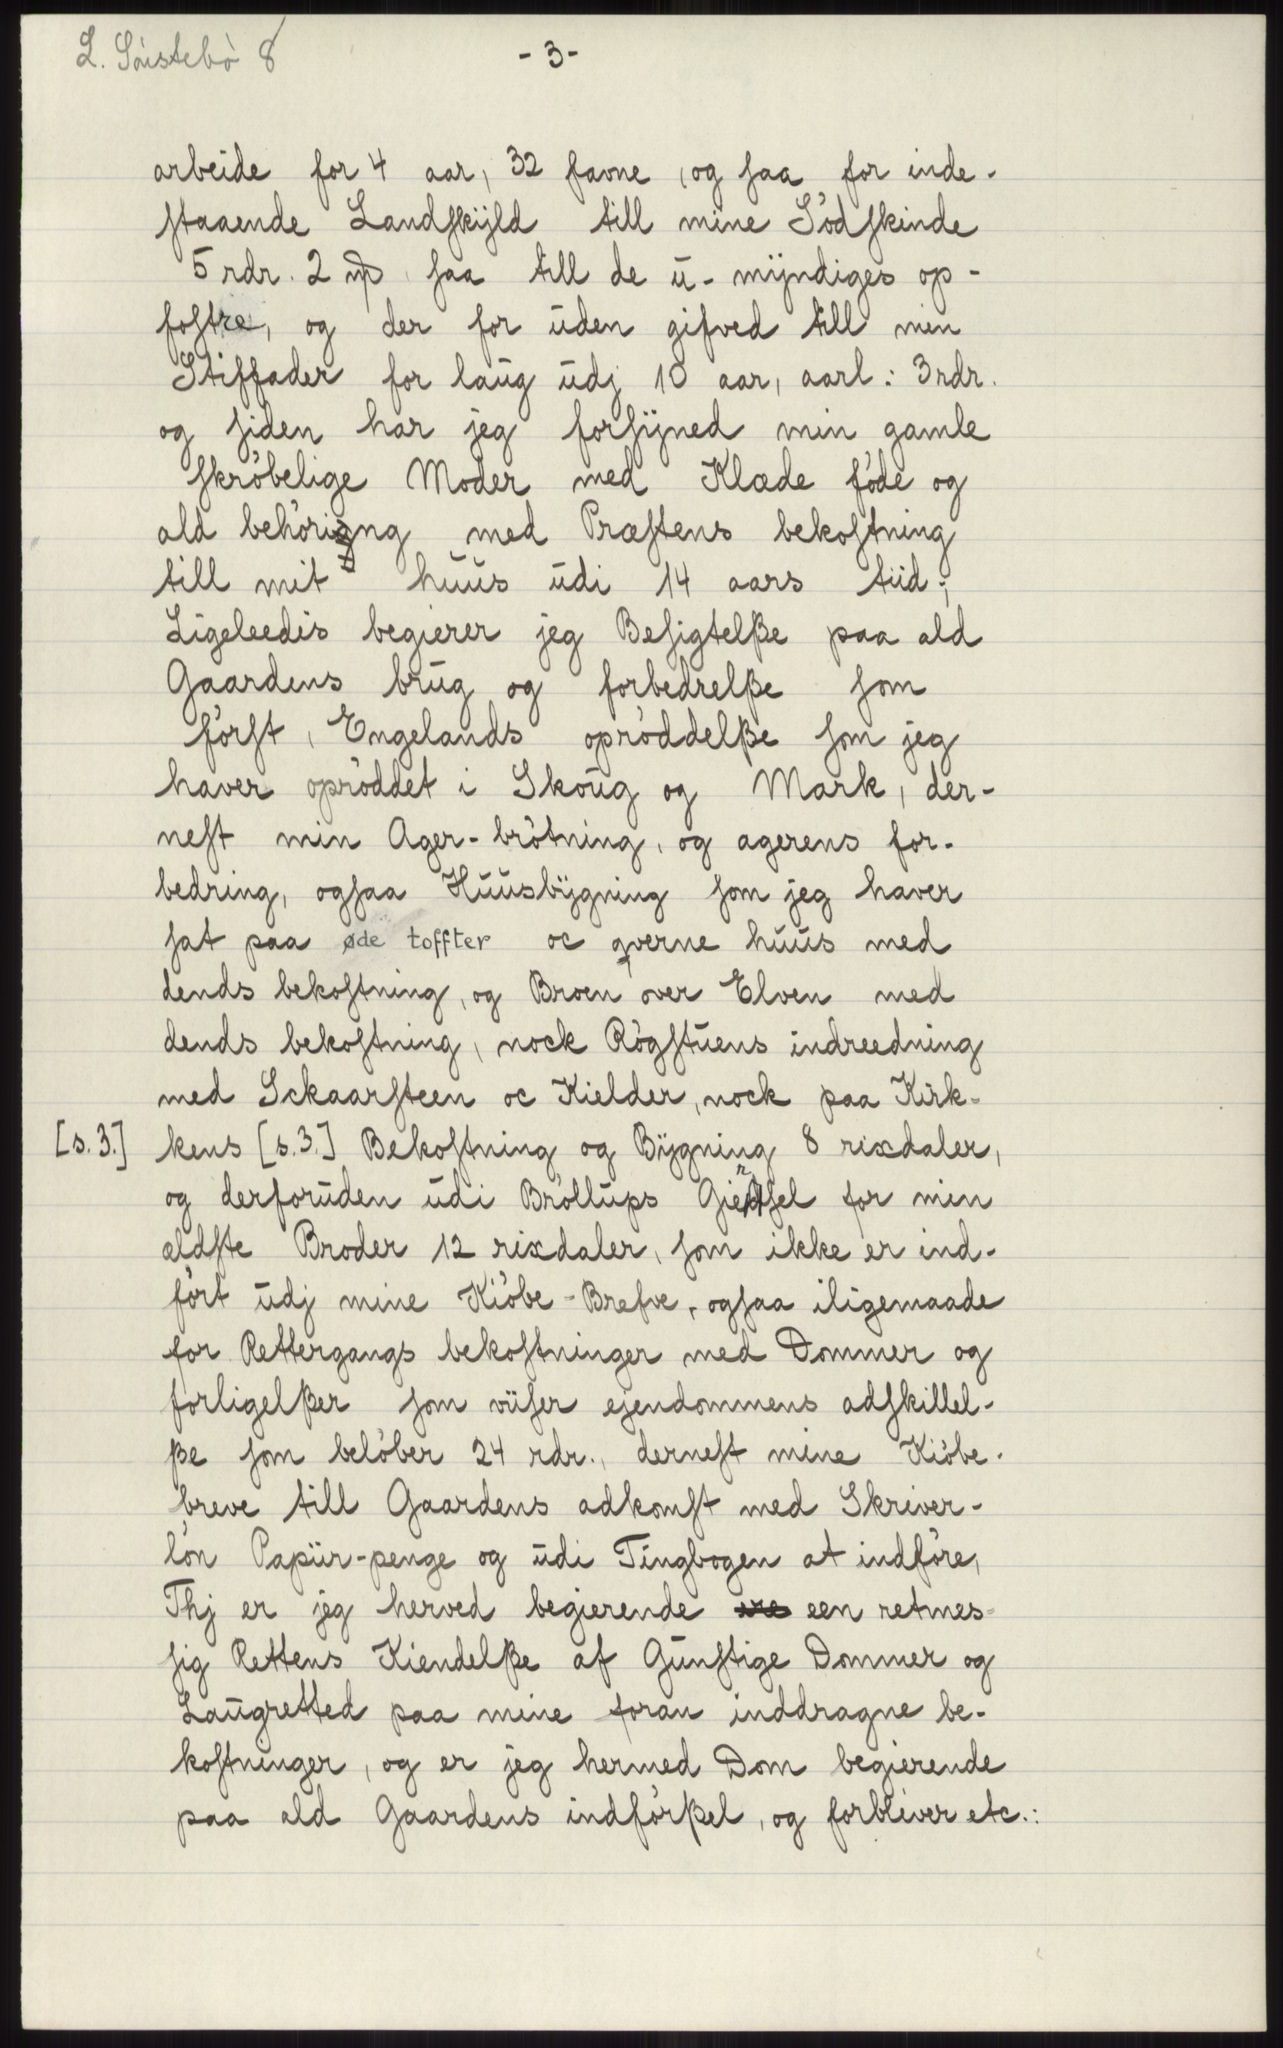 L. Söistebö 8
- 3 -
arbeide for 4 aar, 32 favne, og saa for inde-
staaende Landskÿld till mine Södskinde
5 rdr. 2 mþ saa till de ū-mÿndiges op-
fostre, og der for ūden gifved till min
Stiffader for laūg ūdj 10 aar, aarl: 3 rdr.
og siden har jeg forsÿned min gamle
skröbelige Moder med Klæde föde og
ald behöring med Præstens bekostning
till mit hūūs ūdi 14 aars tiid;
Ligeleedis begierer jeg Besigtelße paa ald
Gaardens brūg og forbedrelße som
först, Engelands opröddelße som jeg
haver opröddet i Skoūg og Mark, der-
nest min Ager-brötning, og agerens for-
bedring, ogsaa Hūūsbÿgning som jeg haver
sat paa øde toffter oc qverne hūūs med
dends bekostning, og Broen over Elven med
dends bekostning, nock Rögstūens indreedning
med Sckaarsteen oc Kielder, nock paa Kirk-
[s. 3.] kens [s. 3.] Bekostning og Bÿgning 8 rixdaler,
og derforūden ūdi Bröllups Giensel for min
ældste Broder 12 rixdaler, som ikke er ind-
fört ūdj mine Kiöbe-Brefve, ogsaa iligemaade
for Rettergangs bekostninger med Dommer og
forligelßer som viiser ejendommens adskillel-
ße som belöber 24 rdr., dernest mine Kiöbe-
breve till Gaardens adkomst med Skriver-
lön Papiir-penge og ūdi Tingbogen at indföre,
Thj er jeg herved begierende een retmes-
sig Rettens Kiendelße af Gūnstige Dommer og
Laūgretted paa mine foran inddragne be-
kostninger, og er jeg hermed Dom begierende
paa ald Gaardens indförßel, og forbliver etc.: